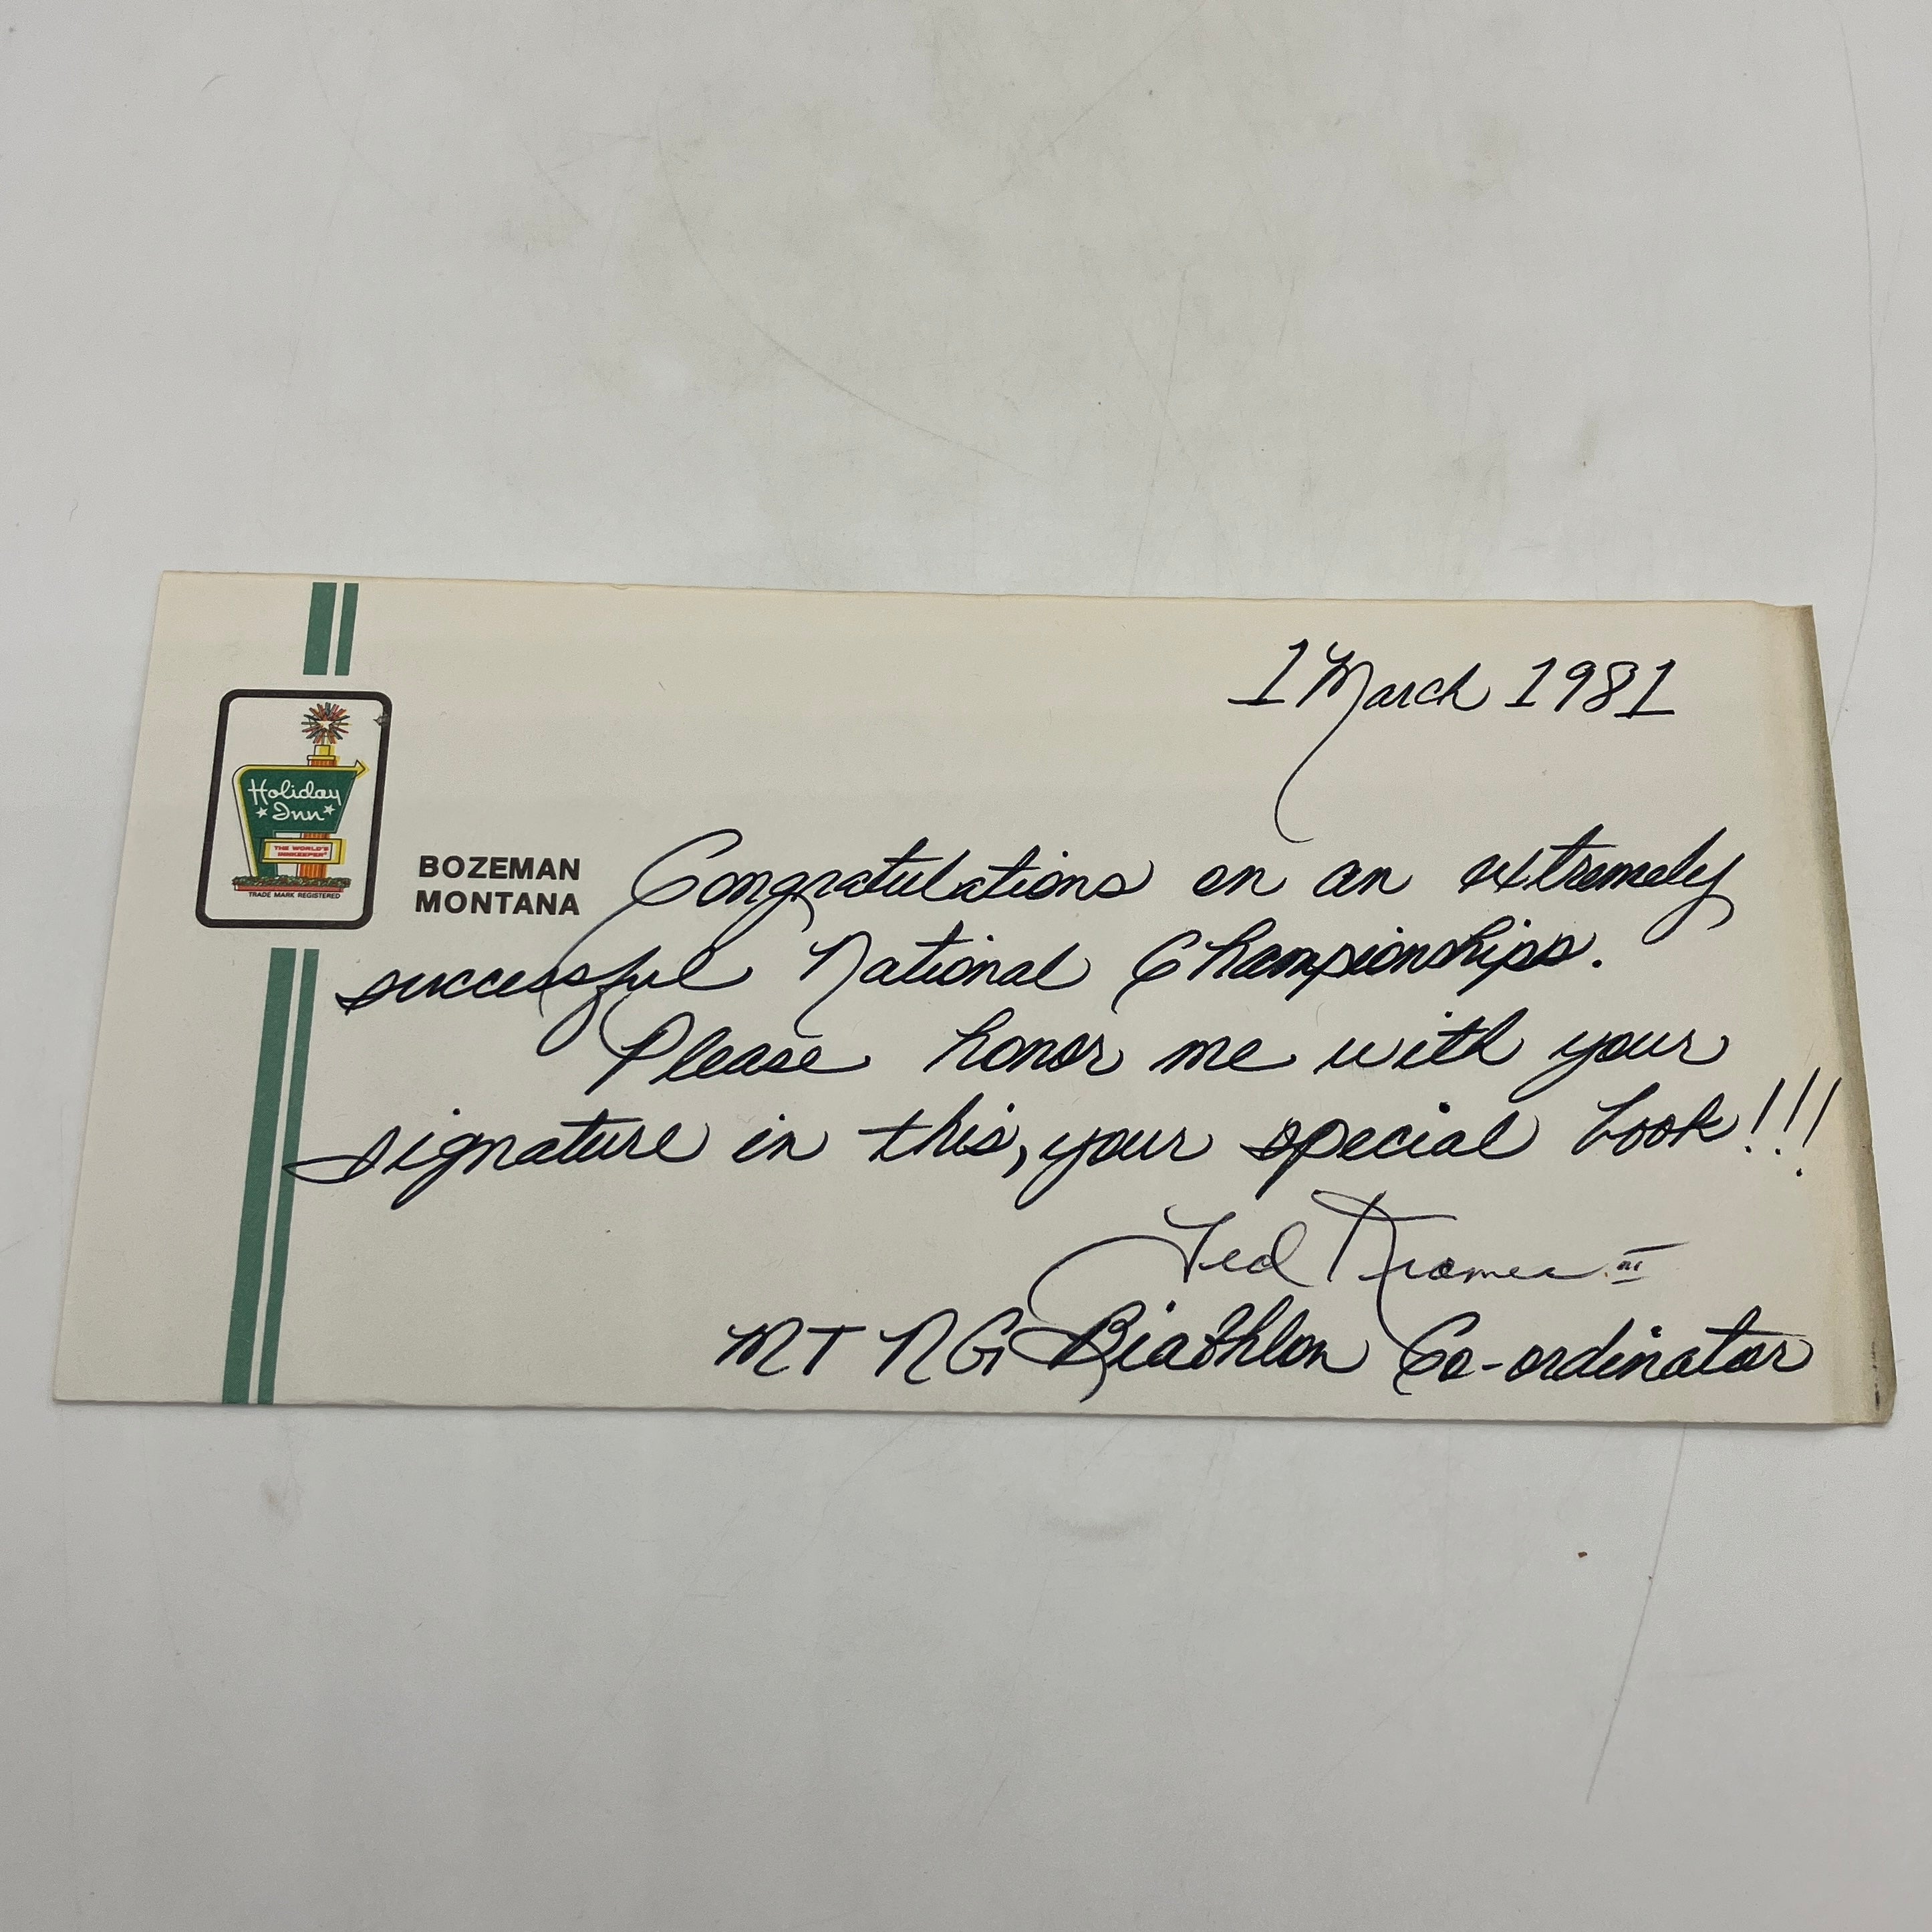 1 March 1981
Holiday
Inn
THE WORLD'S
INNKEEPER
TRADE MARK REGISTERED
BOZEMAN
MONTANA
Congratulations on an extremely
successful National Championships.
Please honor me with your
signature in this, your special book!!!
Ted Kramer III
MT NG Biathlon Co-ordinator